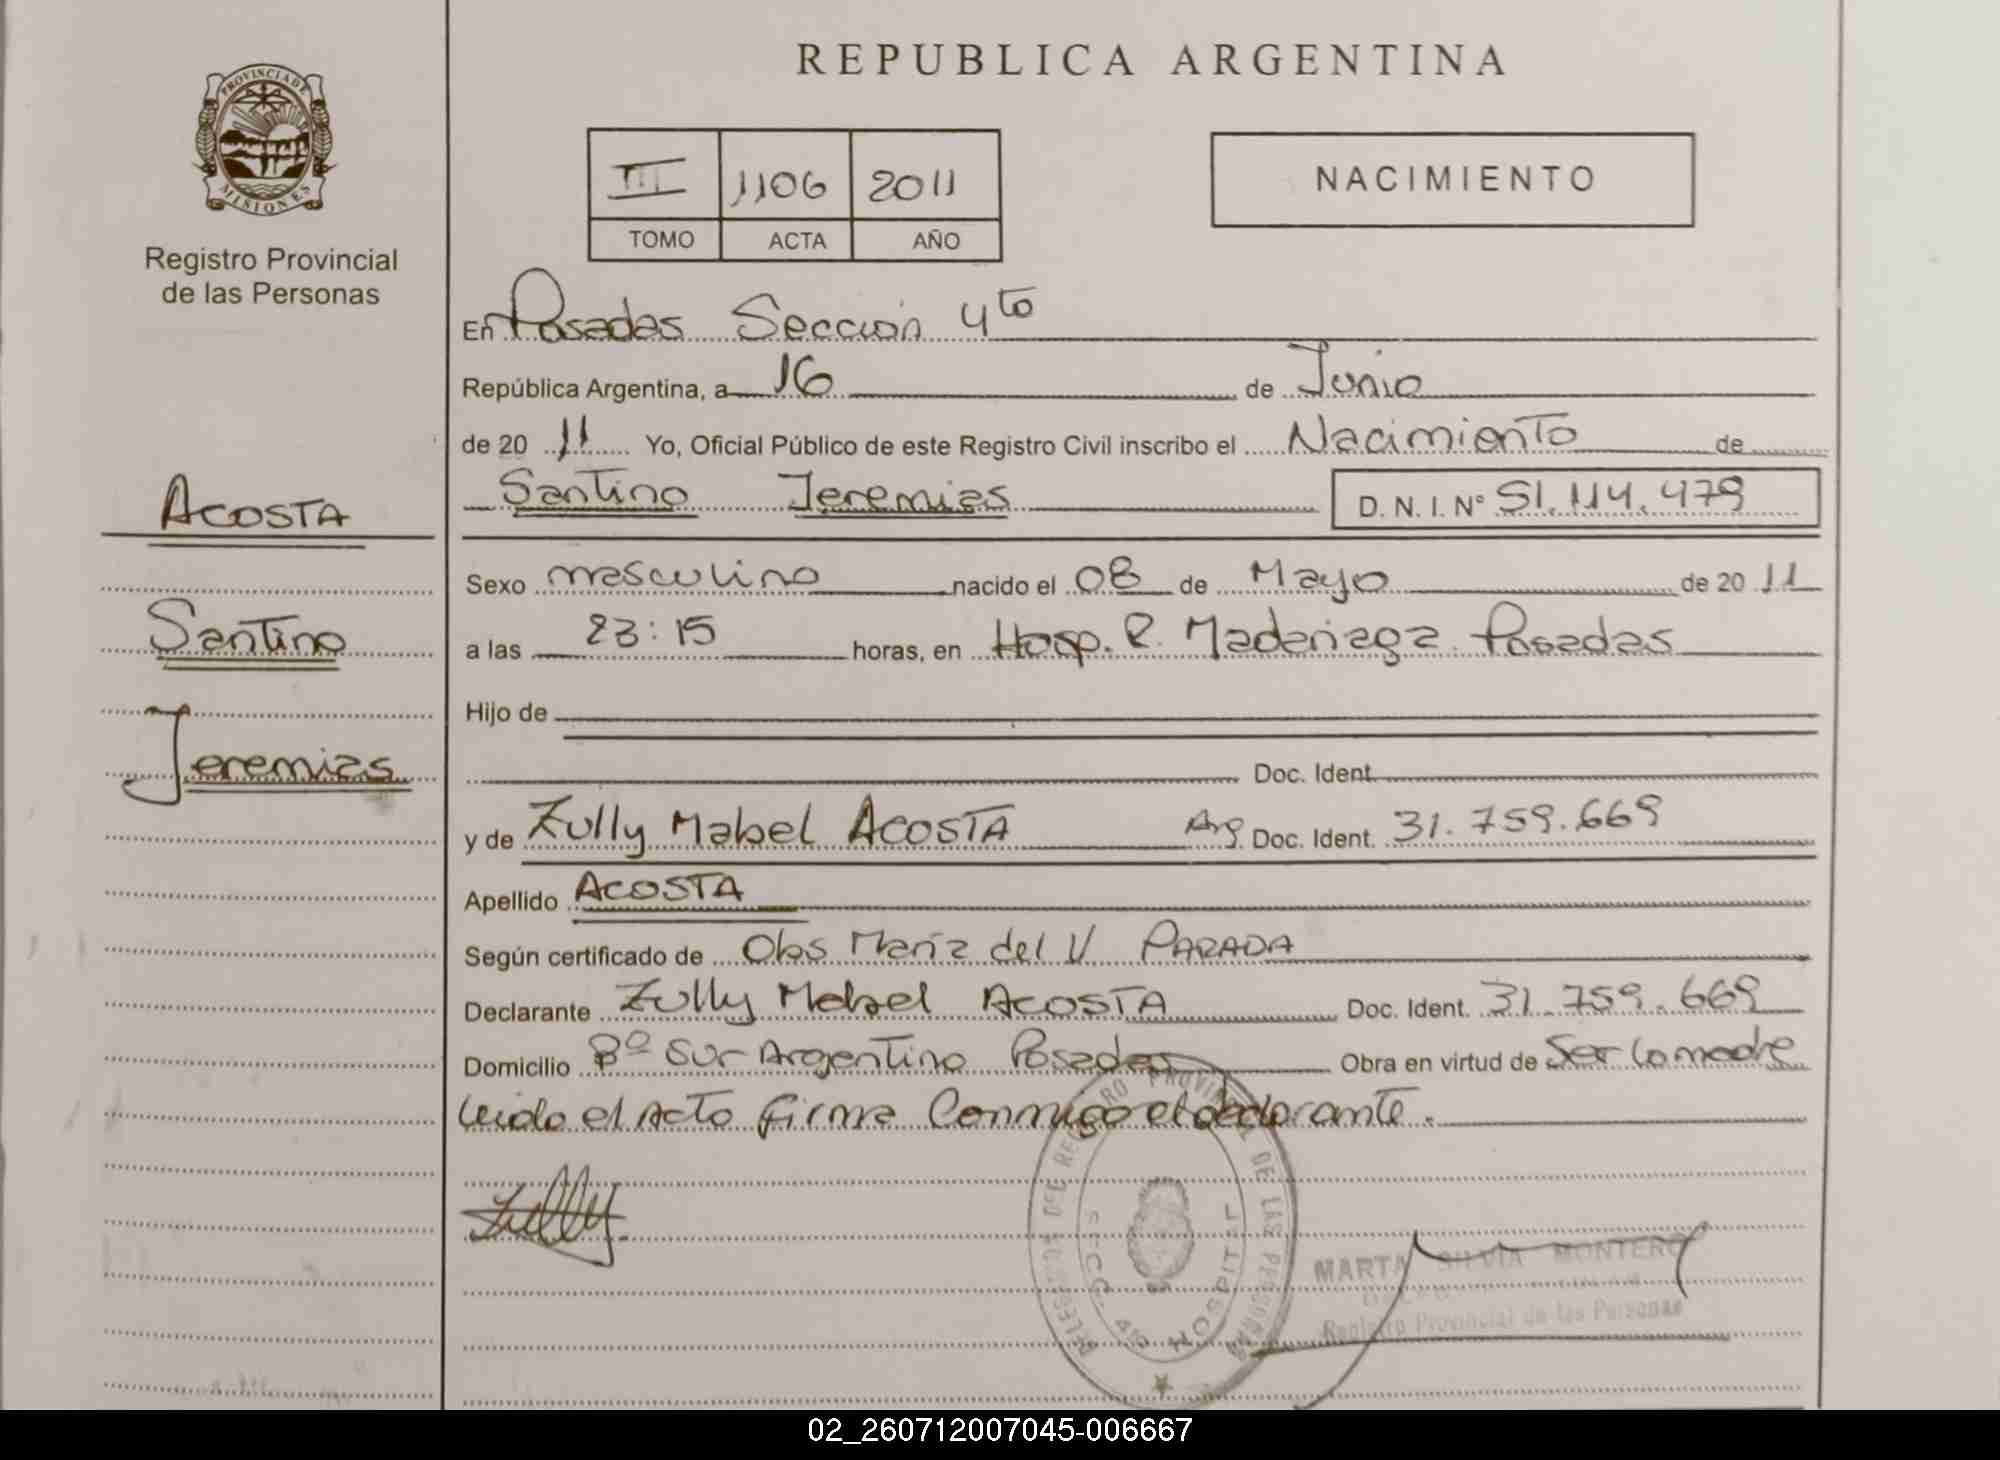 REPUBLICA ARGENTINA
PROVINCIA DE
MISIONES
Registro Provincial
de las Personas
III 1106 2011
TOMO ACTA AÑO
NACIMIENTO
ACOSTA
Santino
Jeremias
En Posadas Sección 4to
República Argentina, a 16 de Junio
de 20 11 Yo, Oficial Público de este Registro Civil inscribo el Nacimiento de
Santino Jeremias D. N. I. N° 51.114.479
Sexo masculino nacido el 08 de Mayo de 20 11
a las 23:15 horas, en Hosp. R. Madariaga Posadas
Hijo de
Doc. Ident.
y de Zully Mabel ACOSTA Arg Doc. Ident. 31.759.669
Apellido ACOSTA
Según certificado de Obs María del V PARADA
Declarante Zully Mabel ACOSTA Doc. Ident. 31.759.669
Domicilio Bº Sur Argentino Posadas Obra en virtud de Ser la madre
Leido el Acto firma Conmigo el declarante.
Zully
DEL REGISTRO PROVINCIAL DE LAS PERSONAS
SECC. 4ta HOSPITAL
MARTA SILVIA MONTERO
Registro Provincial de las Personas
02_260712007045-006667